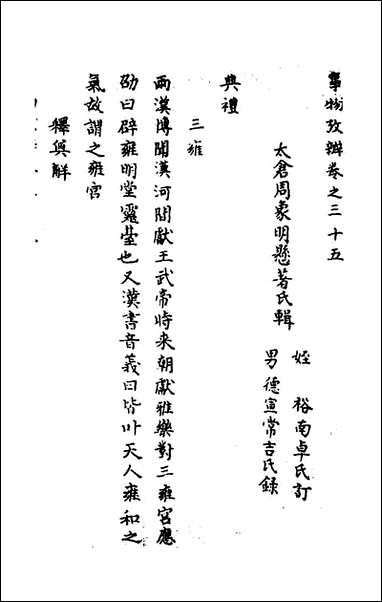 事物攷辨卷之三十五
太倉周象明懸著氏輯
姪　裕南卓氏訂
男德宣常吉氏錄
典禮
三雍
兩漢博聞漢河間獻王武帝時来朝獻雅樂對三雍宮應
劭曰辟雍明堂靈臺也又漢書音義曰皆叶天人雍和之
氣故謂之雍宮
釋奠解